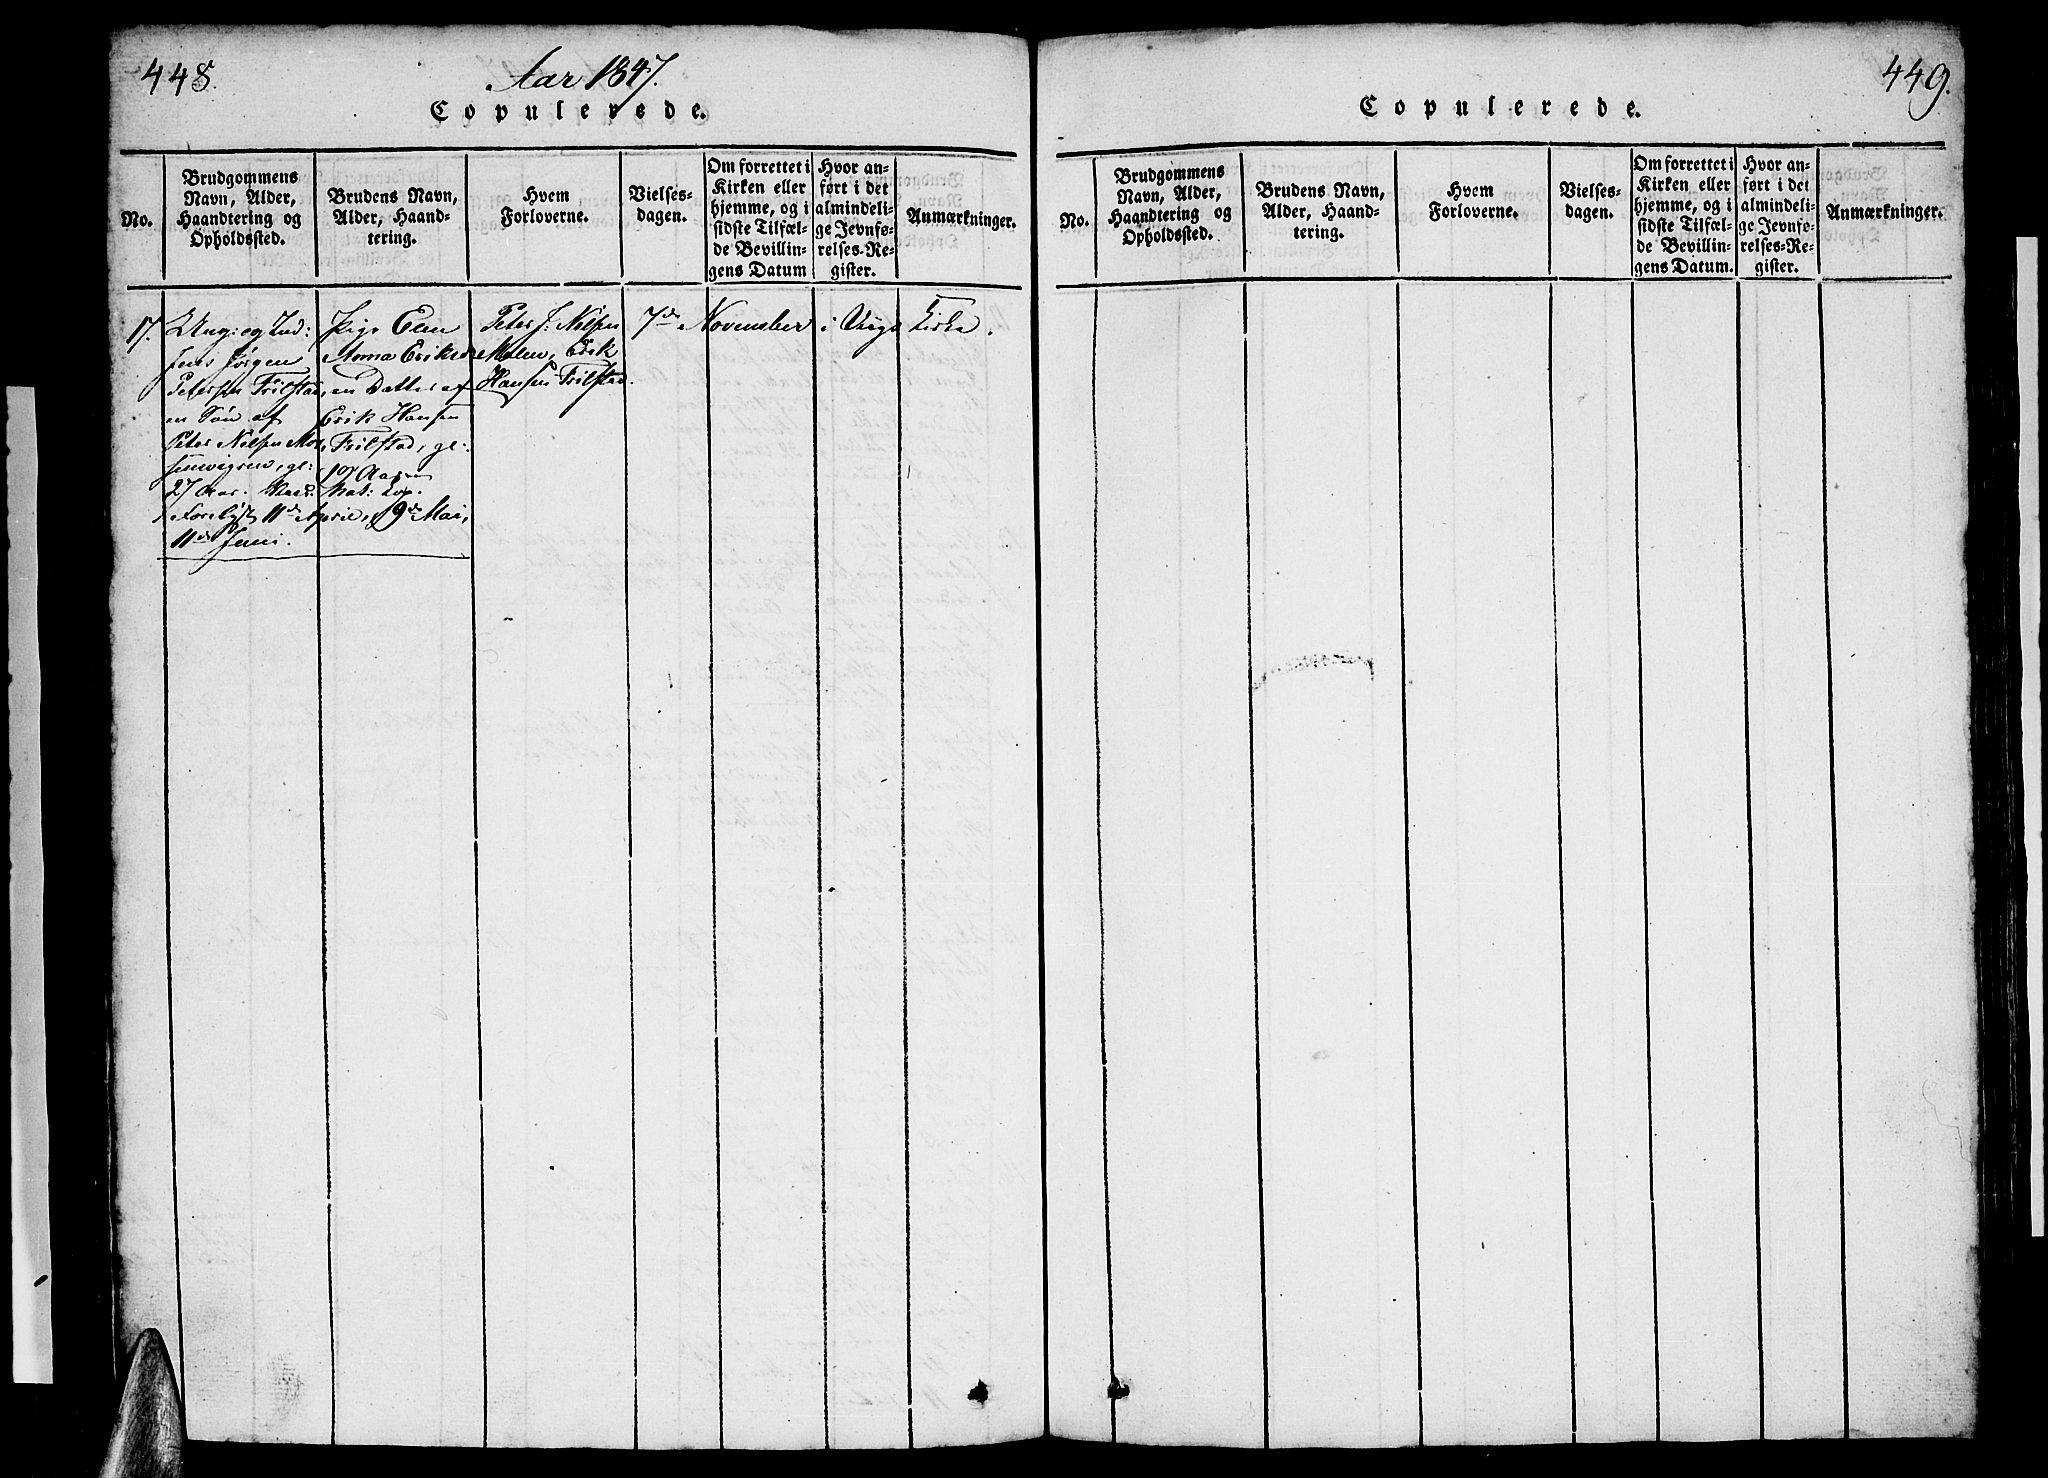 448.
Aar 1847.
Copulerede.
No.
Brudgommens
Navn, Alder,
Haandtering og
Opholdssted.
Brudens Navn,
Alder, Haand-
tering.
Hvem
Forloverne.
Vielses-
dagen.
Om forrettet i
Kirken eller
hjemme, og i
sidste Tilfæl-
de Bevillin-
gens Datum
Hvor an-
ført i det
almindeli-
ge Jevnfø-
relses-Re-
gister.
Anmærkninger.
17.
Ung: og Ind:
Jørgen
Petersen Trilstad,
en Søn af
Peter Nilsen
gl:
27 Aar.
Pige
Anna Eriksd
en Datter af
Erik Hansen
Trilstad, gl:
19 Aar
Nat: Kop.
Forelyst 11de April, 9de Mai,
11de Juni.
Peter J: Nilsen
Malen, Erik
Hansen Trilstad.
7de November i Viigs Kirke.
449.
Copulerede.
No.
Brudgommens
Navn, Alder,
Haandtering og
Opholdssted.
Brudens Navn,
Alder, Haand-
tering.
Hvem
Forloverne.
Vielses-
dagen.
Om forrettet i
Kirken eller
hjemme, og i
sidste Tilfæl-
de Bevillin-
gens Datum.
Hvor an-
ført i det
almindeli-
ge Jevnfø-
relses-Re-
gister.
Anmærkninger.